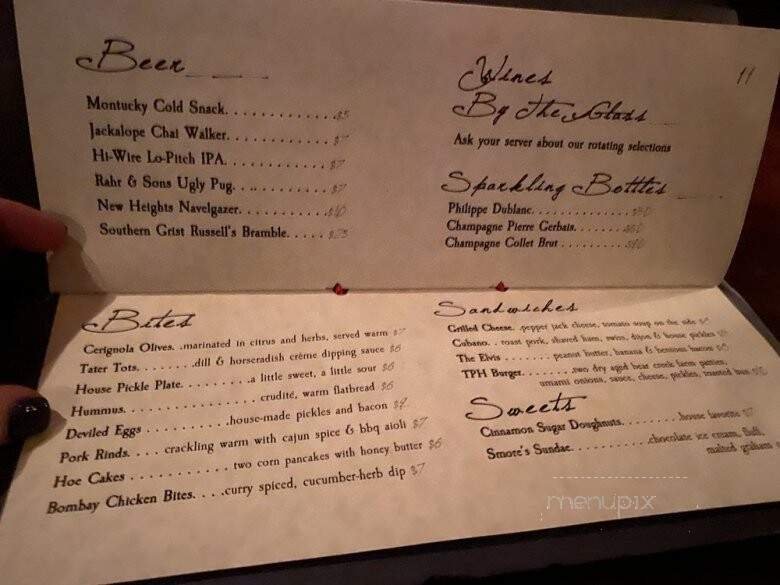 Beer
Montucky Cold Snack. . . . . . . . . . . . .$5
Jackalope Chai Walker. . . . . . . . . . . . .$7
Hi-Wire Lo-Pitch IPA. . . . . . . . . . . . .$7
Rahr & Sons Ugly Pug. . . . . . . . . . . .$7
New Heights Navelgazer. . . . . . . . . . .$10
Southern Grist Russell's Bramble. . . . . $23
11
Wines
By The Glass
Ask your server about our rotating selections
Sparkling Bottles
Philippe Dublanc. . . . . . . . . . . . .
Champagne Pierre Gerbais. . . . . . .
Champagne Collet Brut . . . . . . . . .
Bites
Cerignola Olives. .marinated in citrus and herbs, served warm $7
Tater Tots. . . . . . . .dill & horseradish crème dipping sauce $6
House Pickle Plate. . . . . . . . .a little sweet, a little sour $6
Hummus. . . . . . . . . . . . . . . . crudité, warm flatbread $6
Deviled Eggs . . . . . . . . . .house-made pickles and bacon
Pork Rinds. . . . crackling warm with cajun spice & bbq aioli $7
Hoe Cakes . . . . . . . . . . . two corn pancakes with honey butter $6
Bombay Chicken Bites. . . .curry spiced, cucumber-herb dip $7
Sandwiches
Grilled Cheese. .pepper jack cheese, tomato soup on the side
Cubano. . roast pork, shaved ham, swiss, dijon & house pickles
The Elvis . . . . . . . peanut butter, banana & bacon
TPH Burger. . . . . . . .two dry aged bear creek farm patties,
umami onions, sauce, cheese, pickles, toasted bun
Sweets
Cinnamon Sugar Doughnuts. . . . . . . . . .house favorite
Smore's Sundae. . . . . . . . . . .chocolate ice cream, fluff,
malted graham
menupix